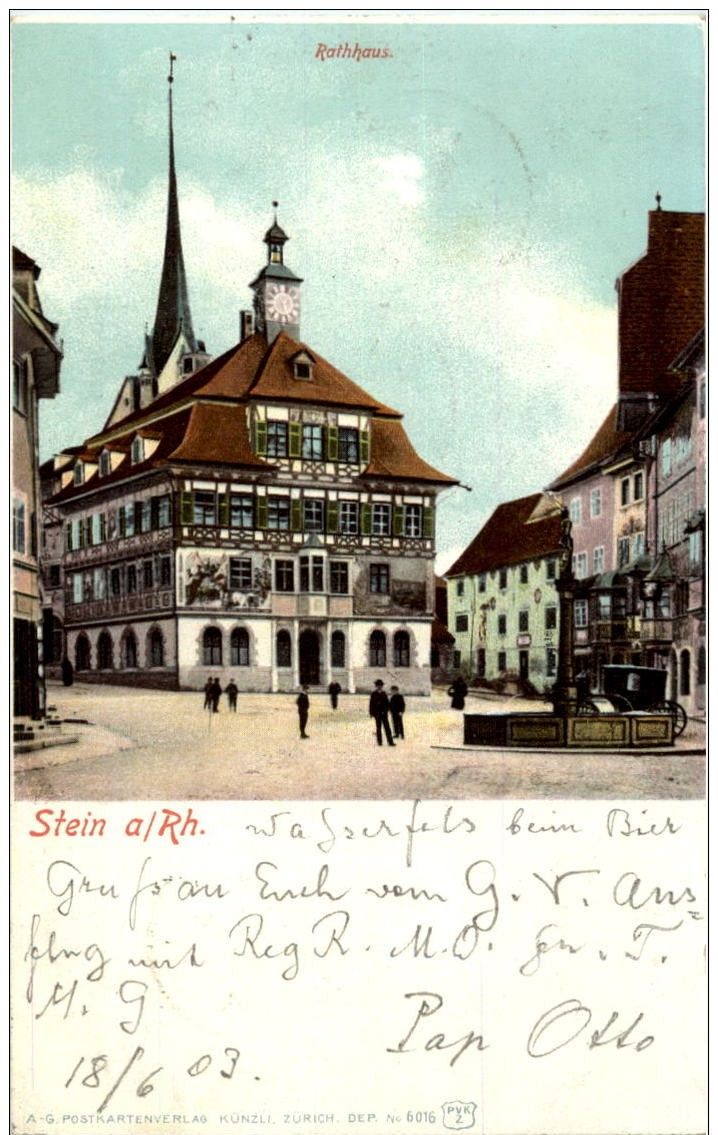 Rathhaus.
Stein a/Rh. Wasserfels beim Bier
Gruß an Euch vom G. V. Aus=
flug mit Reg R. M. O. T.
M. G
Pap Otto
18/6 03.
A-G. POSTKARTENVERLAG KÜNZLI, ZÜRICH. DEP. No 6016 PVKZ